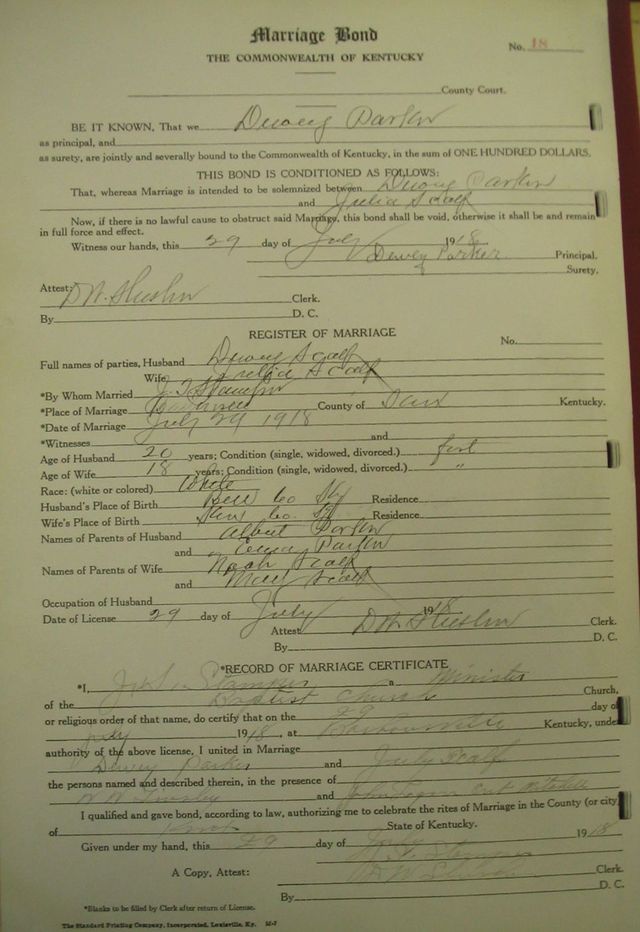 Marriage Bond
No. 18
THE COMMONWEALTH OF KENTUCKY
County Court.
BE IT KNOWN, That we Dewey Parker
as principal, and
as surety, are jointly and severally bound to the Commonwealth of Kentucky, in the sum of ONE HUNDRED DOLLARS.
THIS BOND IS CONDITIONED AS FOLLOWS:
That, whereas Marriage is intended to be solemnized between Dewey Parker
and Julia Scalf
Now, if there is no lawful cause to obstruct said Marriage, this bond shall be void, otherwise it shall be and remain
in full force and effect.
Witness our hands, this 29 day of July 1918
Dewey Parker Principal.
Surety.
Attest: Clerk.
By D. C.
REGISTER OF MARRIAGE
No.
Full names of parties, Husband Dewey Scalf
Wife Scalf
*By Whom Married
*Place of Marriage County of Kentucky.
*Date of Marriage July 29 1918
*Witnesses and
Age of Husband 20 years; Condition (single, widowed, divorced.) first
Age of Wife 18 years; Condition (single, widowed, divorced.) "
Race: (white or colored) White
Husband's Place of Birth Bell Co Ky Residence
Wife's Place of Birth Co. Ky Residence
Names of Parents of Husband Albert Parker
and Parker
Names of Parents of Wife Noah Scalf
and Mary Scalf
Occupation of Husband
Date of License 29 day of July 1918
Attest Clerk.
By D. C.
*RECORD OF MARRIAGE CERTIFICATE
*I, Stamper a Minister
of the Baptist Church Church,
or religious order of that name, do certify that on the 29 day of
July 1918, at Barbourville Kentucky, under
authority of the above license, I united in Marriage
Dewey Parker and July Scalf
the persons named and described therein, in the presence of
and
I qualified and gave bond, according to law, authorizing me to celebrate the rites of Marriage in the County (or city)
of Knox State of Kentucky.
Given under my hand, this 29 day of July 1918
A Copy, Attest: Clerk.
By D. C.
*Blanks to be filled by Clerk after return of License.
The Standard Printing Company, Incorporated, Louisville, Ky. M-7